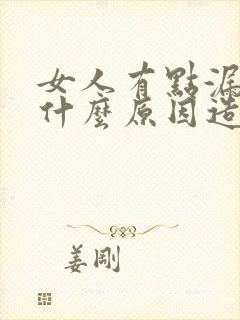 女人有點漏
什麼原因造
姜剛